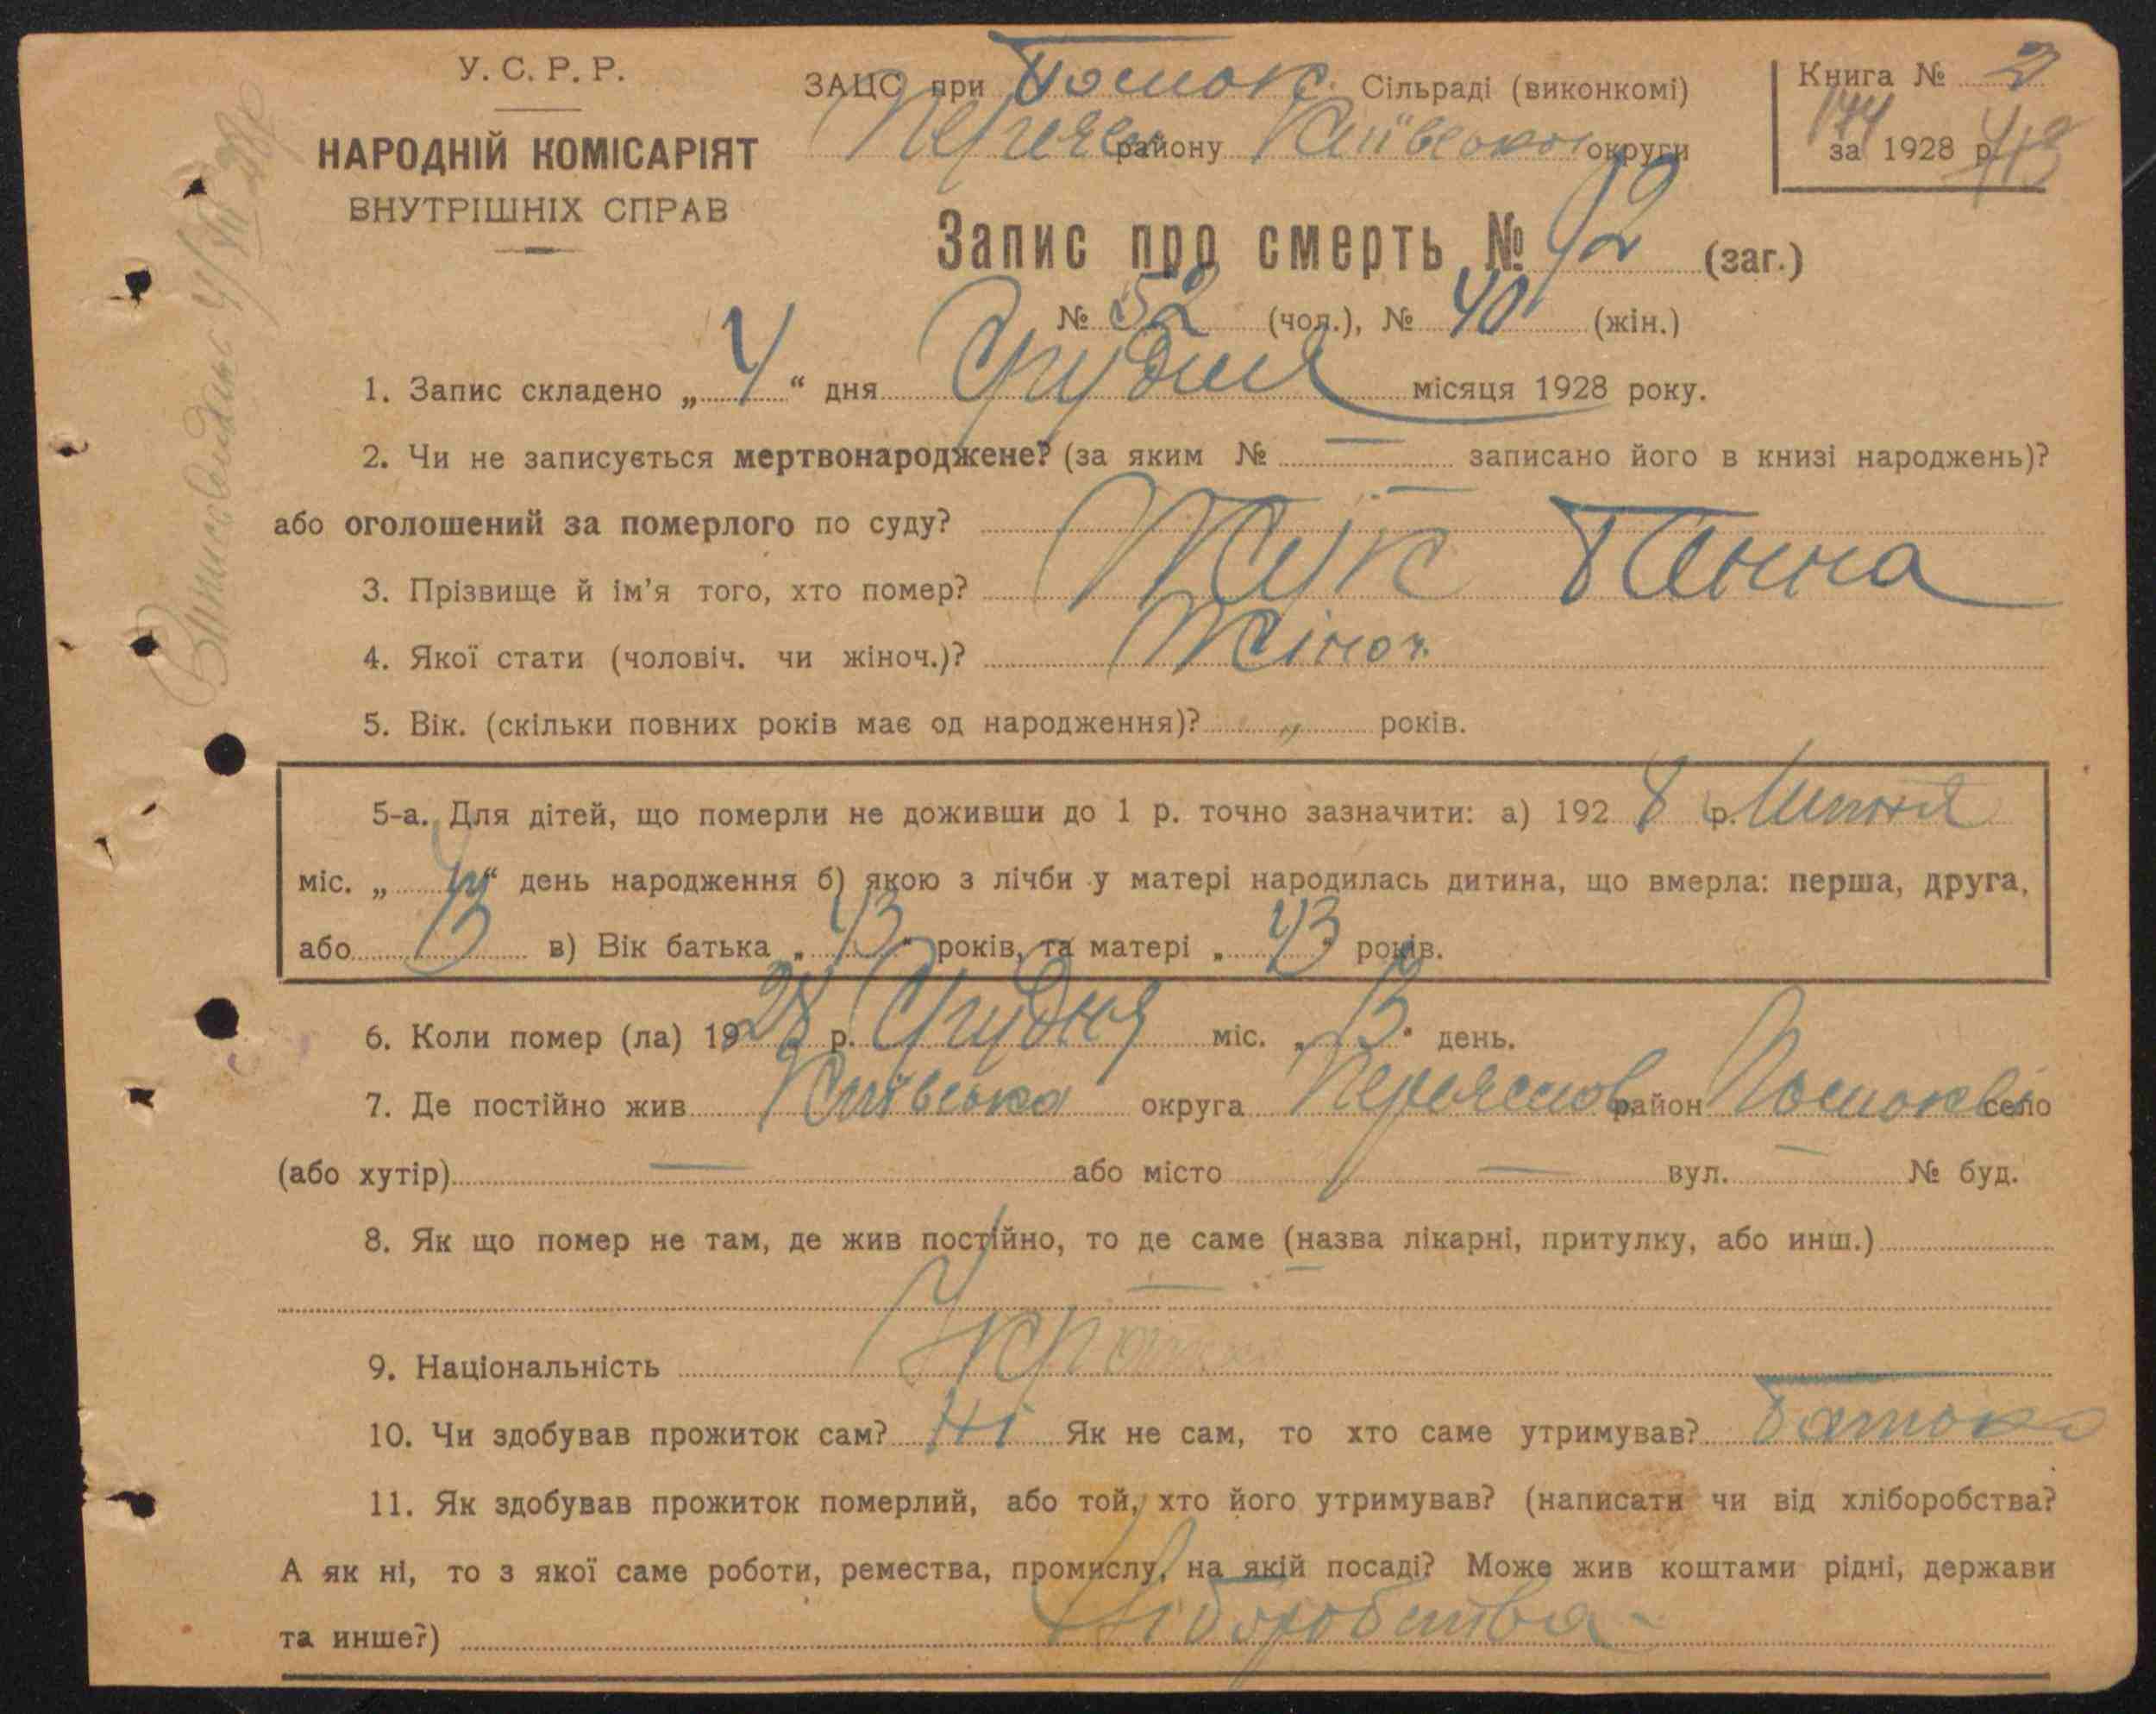 У. С. Р. Р.
НАРОДНІЙ КОМІСАРІЯТ
ВНУТРІШНІХ СПРАВ
ЗАЦС при Сільраді (виконкомі)
району Київської округи
Книга № 2
за 1928 р.
Запис про смерть № 92 (заг.)
№ 52 (чол.), № 40 (жін.)
1. Запис складено „ 4 “ дня Грудня місяця 1928 року.
2. Чи не записується мертвонароджене? (за яким № — записано його в книзі народжень)?
або оголошений за померлого по суду? —
3. Прізвище й ім'я того, хто помер? Жук Ганна
4. Якої стати (чоловіч. чи жіноч.)? Жіноч.
5. Вік. (скільки повних років має од народження)? „ років.
5-а. Для дітей, що померли не доживши до 1 р. точно зазначити: а) 1928 р. Липня
міс. „ “ день народження б) якою з лічби у матері народилась дитина, що вмерла: перша, друга,
або 3 в) Вік батька „ 43 “ років, та матері „ 43 “ років.
6. Коли помер (ла) 1928 р. Грудня міс. „ 3 “ день.
7. Де постійно жив Київська округа Переяслов район село
(або хутір) — або місто — вул. — № буд.
8. Як що помер не там, де жив постійно, то де саме (назва лікарні, притулку, або инш.) —
9. Національність Укра
10. Чи здобував прожиток сам? Ні Як не сам, то хто саме утримував? Батько
11. Як здобував прожиток померлий, або той, хто його утримував? (написати чи від хліборобства?
А як ні, то з якої саме роботи, ремества, промислу, на якій посаді? Може жив коштами рідні, держави
та инше?) Хліборобства